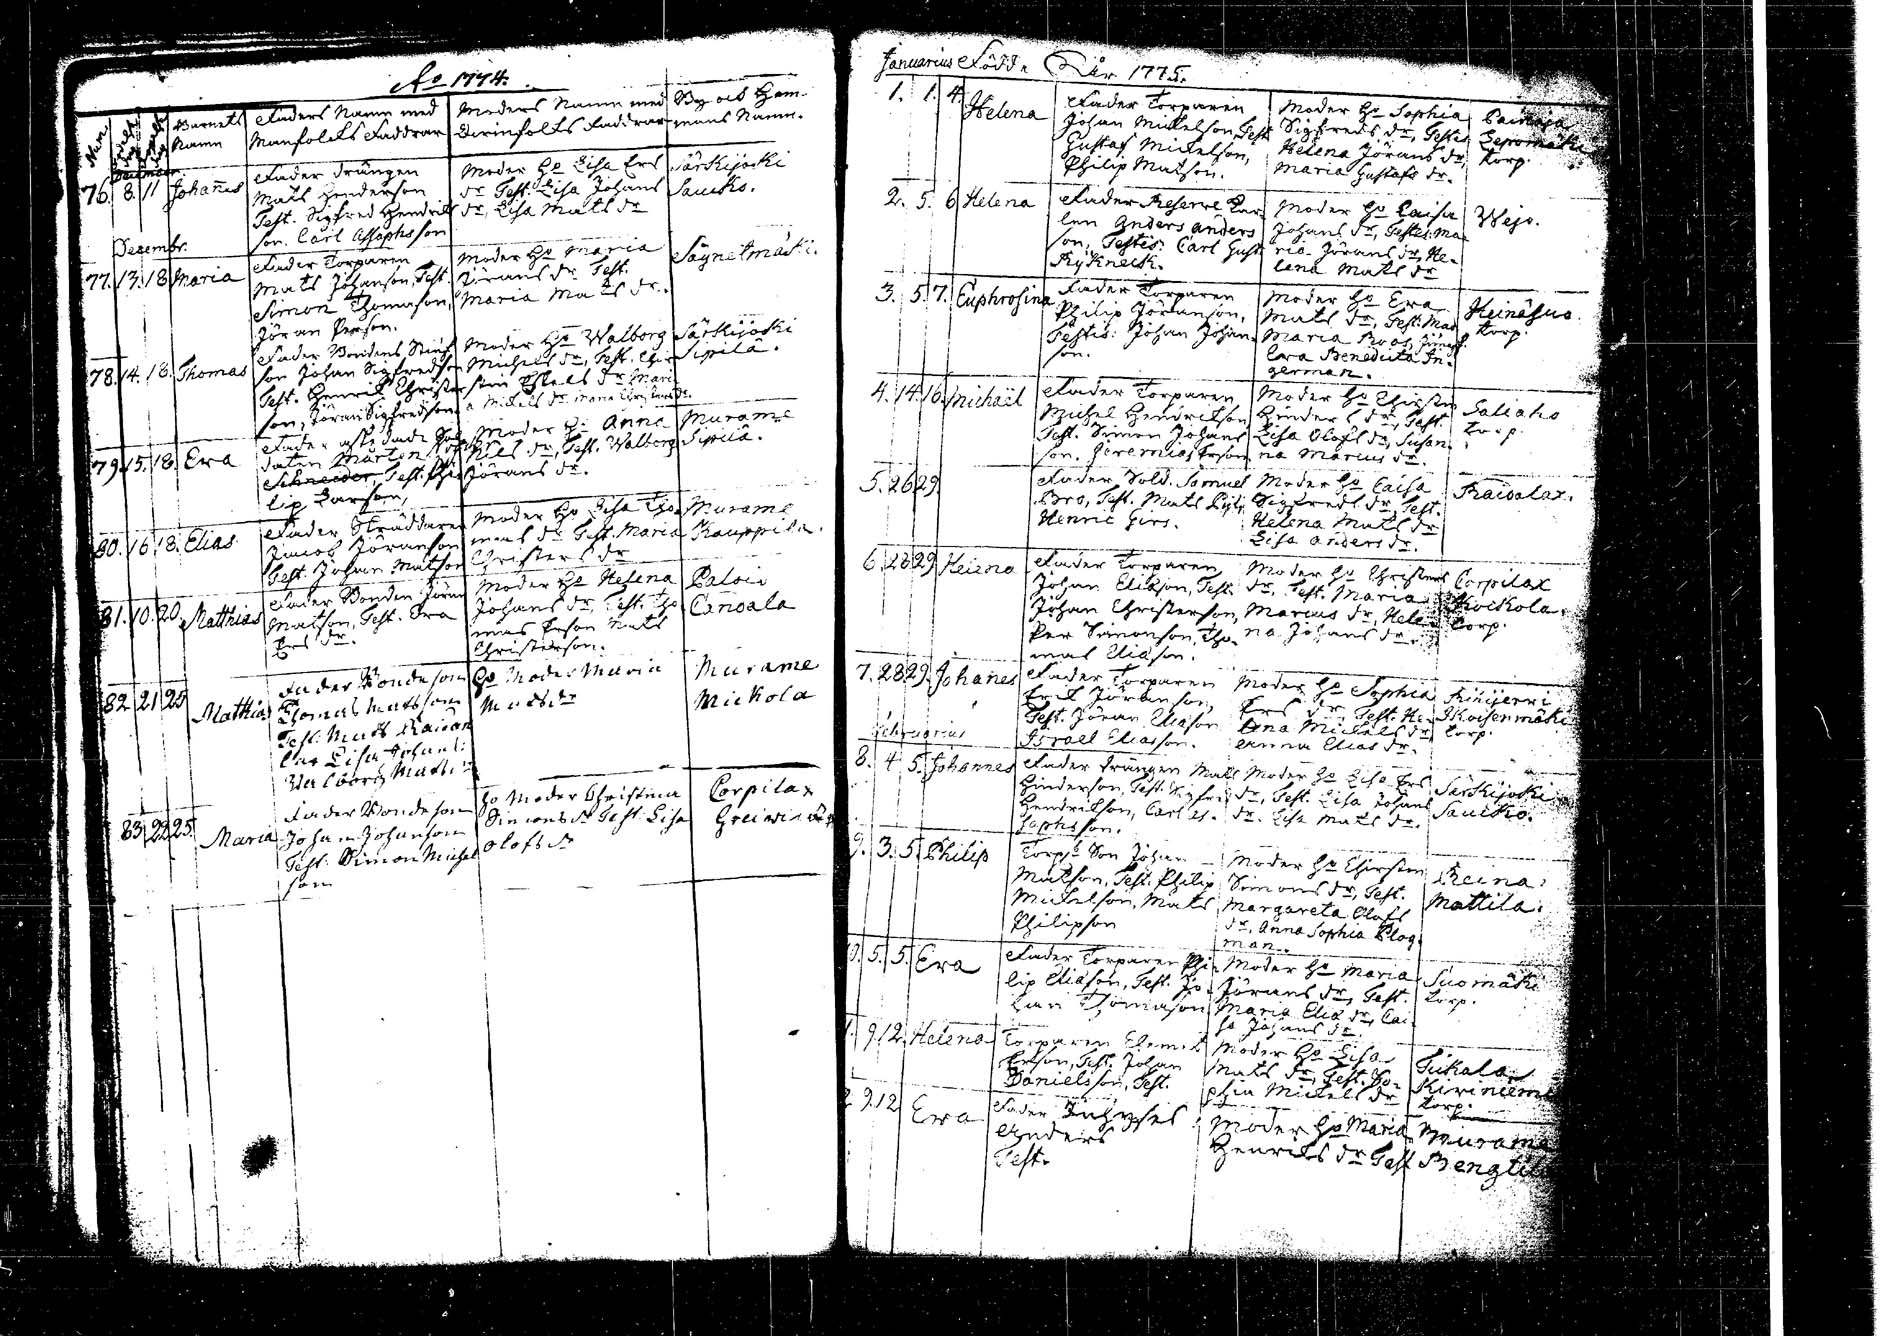 Ao 1774.
Num
Barnets Namn
Faders Namn med Manfolcks Faddrar
Moders Namn med Qvinfolks Faddrar
By och Hemmans Namn.
December.
76. 8. 11 Johañes
Fader drängen
Mats Henderson
Test. Sigfred Hendrik
son. Carl Assaphsson
Moder Ho Lisa Ers
dr Test. Lisa Johans
dr, Lisa Mats dr
Särkijocki
Saucko.
Decembr.
77. 13. 18 Maria
Fader Torparen
Mats Johanson, Test.
Simon Thomason,
Jöran Person.
Moder Ho Maria
Jörans dr Test.
Maria Mats dr.
Säynetmäki.
78. 14. 18. Thomas
Fader Bondens
son Johan Sigfredson
Test. Henric Christer
son, Jöran Sigfredson
Moder Ho Walborg
Michels dr, Test. Chir
stin Eskels dr Mari
a Mickels dr, Maria Christers dr.
Särkijocki
Sipilä.
79. 15. 18. Eva
Fader afskedade Sol
daten Mårten
Schneider, Test. Phi
lip Larson,
Moder Ho Anna
Nils dr, Test. Walborg
Jörans dr.
Murame
Sipilä.
80. 16. 18. Elias
Fader Skräddaren
Jacob Jöranson
Test. Johan Matson
Moder Ho Lisa Tho
mas dr Test. Maria
Christers dr
Murame
Kauppila.
81. 10. 20. Matthias
Fader Bonden Jöran
Matson, Test. Eva
Ers dr.
Moder Ho Helena
Johans dr, Test. Tho
mas Erson Mats
Christerson.
Palois
Canoala
82 21 25 Matthias
Fader Bondeson
Thomas Matsson
Test: Mats
Lisa Johans
Walborg Mats dr
Ho Moder Maria
Mats dr
Murame
Mickola
83 22 25. Maria
Fader Bondeson
Johan Johansson
Test: Simon Michel
son
Ho Moder Christina
Simons dr Test: Lisa
Olofs dr
Corpilax
Januarius Födde År 1775.
1. 1. 4. Helena
Fader Torparen
Johan Mickelson, Test
Gustaf Mickelson,
Philip Matson.
Moder Ho Sophia
Sigfreds dr, Testes
Helena Jörans dr,
Maria Gustafs dr.
Lepomäki
torp.
2. 5. 6 Helena
Fader Reserve Kar
len Anders Anders
son, Testis: Carl Gust
Ryknelck.
Moder Ho Caisa
Johans dr, Testes: Ma
ria Jörans dr, He-
lena Mats dr
Wejo.
3. 5. 7. Euphrosina
Fader Torparen
Philip Jöranson,
Testis: Johan Johan
son.
Moder Ho Eva
Mats dr, Test: Mad
Maria Roos, Jungf.
Cara Benedicta In-
german.
Heinäsuo
torp.
4. 14. 16. Michaël
Fader Torparen
Michel Hendrikson
Test. Simon Johans
son. Jeremias Erson
Moder Ho Chirstin
Hinders dr, Test.
Lisa Olofs dr, Susan
na Marcus dr.
Saliaho
torp.
5. 26 29.
Fader Sold. Samuel
Bro, Test. Mats
Henric Girs.
Moder Ho Caisa
Sigfreds dr, Test.
Helena Mats dr
Lisa Anders dr.
6. 28 29 Heicna
Fader Torparen
Johan Eliason, Test.
Johan Christerson,
Per Simonson, Tho-
mas Eliason.
Moder Ho Christers
dr, Test. Maria
Marcus dr, Hele
na Johans dr.
Corpilax
Kockola
torp.
7. 28 29. Johañes
Fader Torparen
Erik Jöranson,
Test. Jöran Eliason
Israel Eliasson.
Moder Ho Sophia
Ers dr, Test. He-
lena Michels dr,
Anna Elias dr.
Koisenmäki
torp.
Februarius
8. 4 5. Johannes
Fader drängen Mats
Hinderson, Test. Sigfre
Hendrikson, Carl As-
saphsson.
Moder Ho Lisa Ers
dr, Test. Lisa Johans
dr. Lisa Mats dr.
Särkijocki
Saucko.
9. 3. 5. Philip
Torp: Son Johan
Matson, Test. Philip
Mickelson, Mats
Philipson
Moder Ho Chirstin
Simons dr, Test.
Margareta Olofs
dr. Anna Sophia Plog
man.
Reina
Mattila.
10. 5. 5. Eva
Fader Torparen Phi-
lip Eliason, Test. Jo-
han Thomason
Moder Ho Maria
Jörans dr, Test.
Maria Elias dr, Cai-
sa Johans dr
Suomäki
torp.
1. 9 12. Helena
Torparen Clemet
Erson, Test. Johan
Danielsson, Test.
Moder Ho Lisa
Mats dr, Test. So-
phia Mickels dr
Tickala
Kiviniemi
torp.
2 9. 12 Eva
Fader Inhyses
Anders
Test.
Moder Ho Maria
Henriks dr Test
Murame